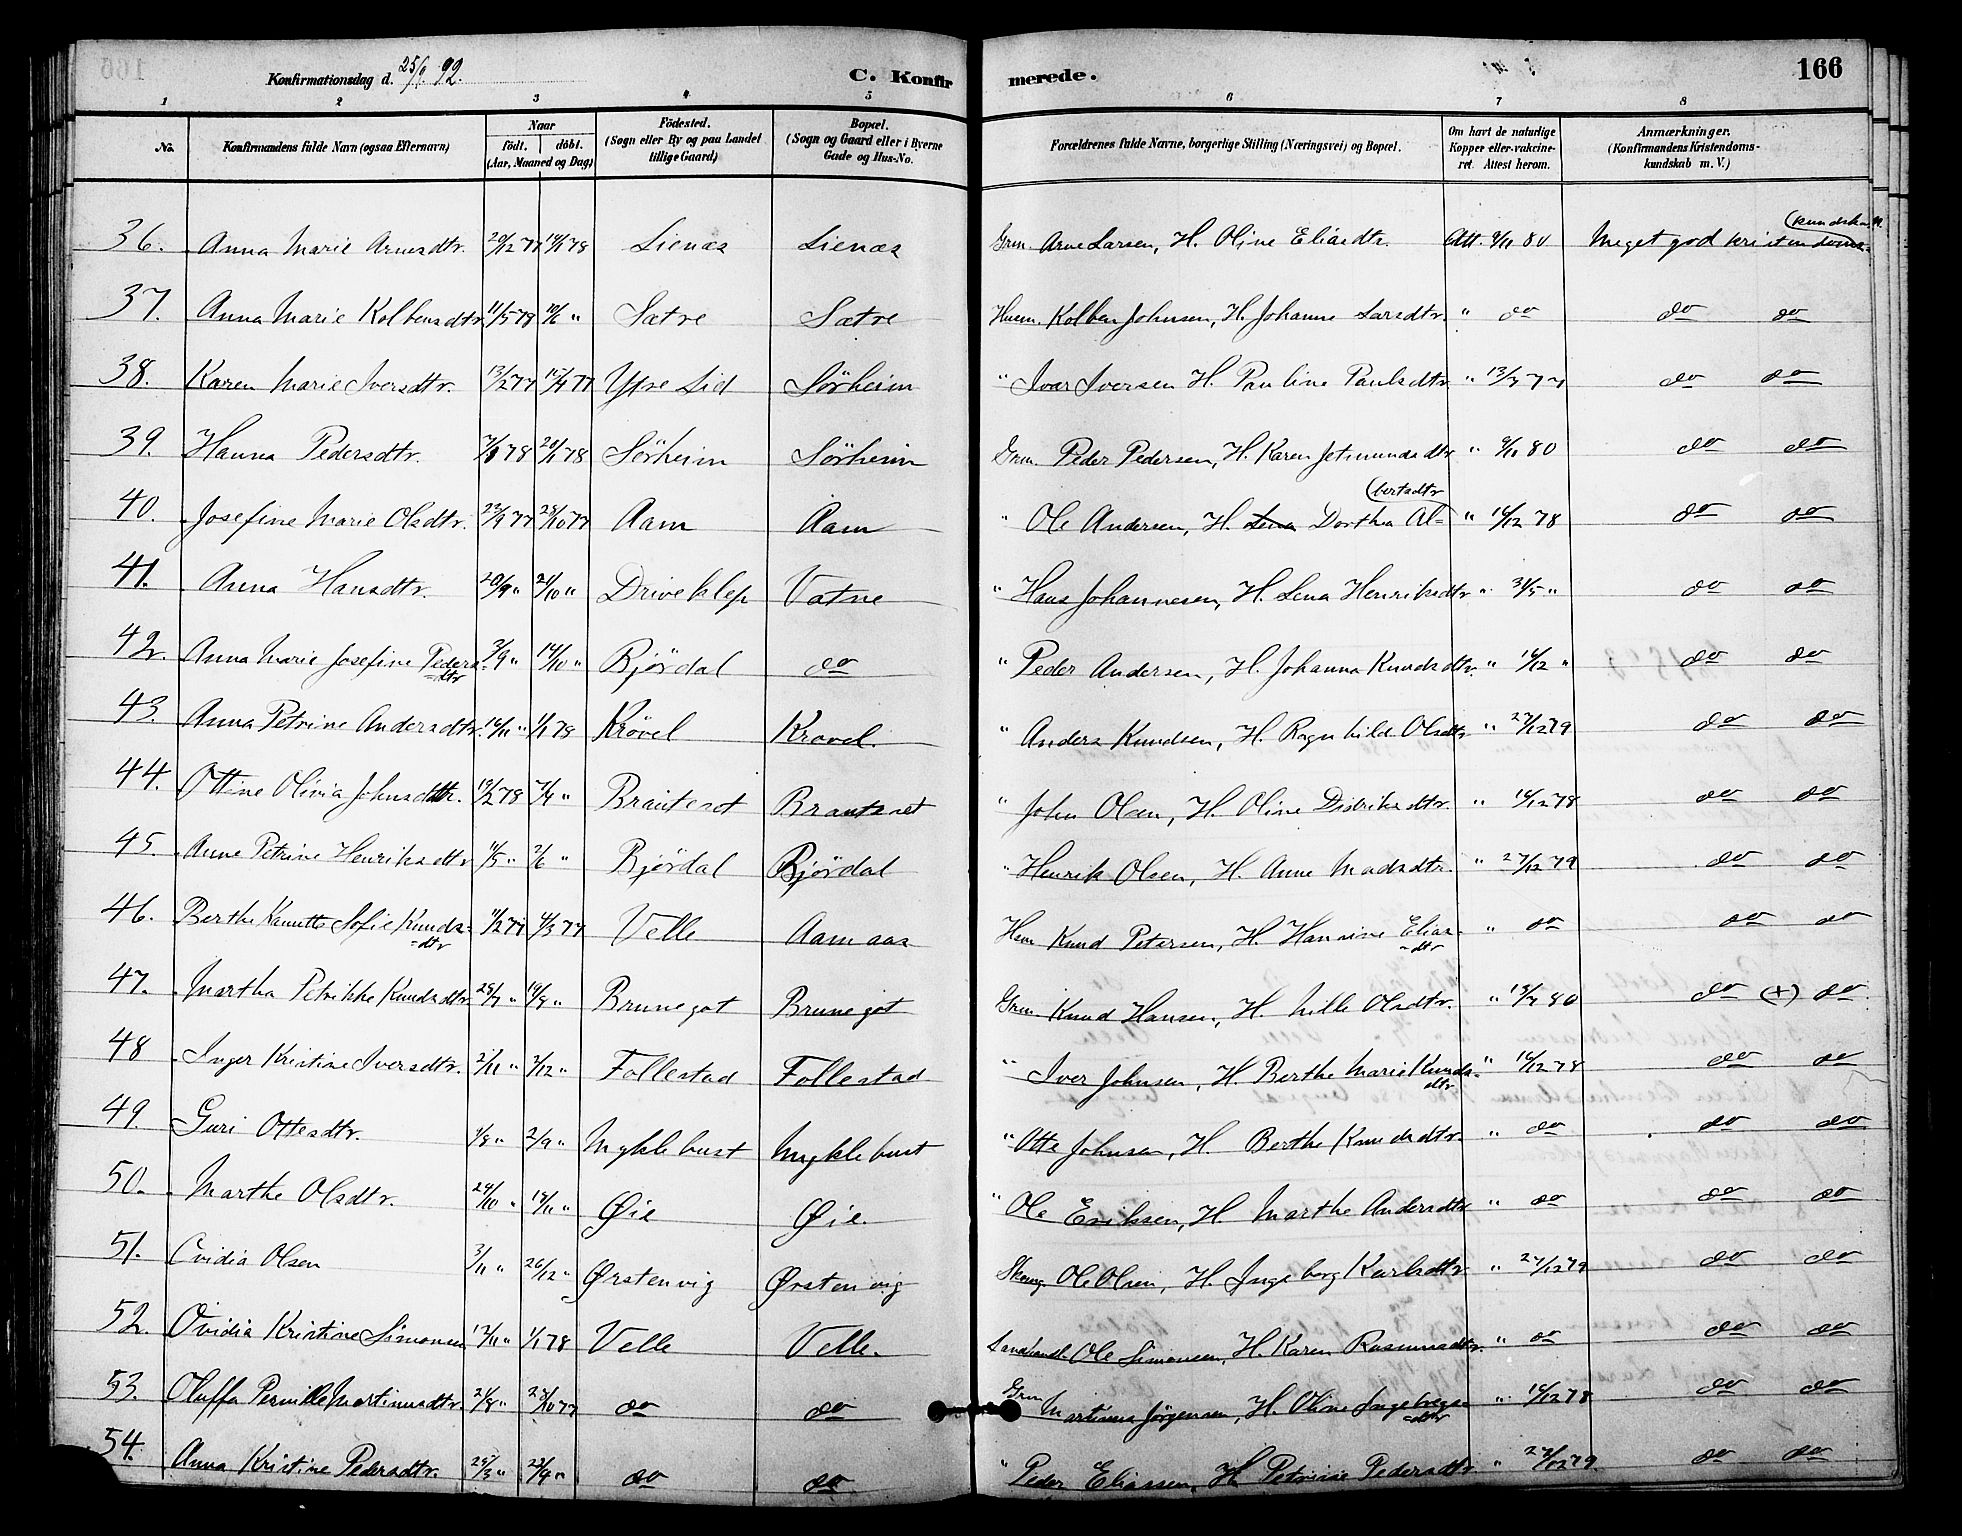 Konfirmationsdag d. 25/9 92.
C. Konfirmerede.
166
1 2 3 4 5 6 7 8
No. Konfirmandens fulde Navn (ogsaa Efternavn) Naar födt. döbt. (Aar, Maaned og Dag) Födested. (Sogn eller By og paa Landet tillige Gaard) Bopæl. (Sogn og Gaard eller i Byerne Gade og Hus-No. Forældrenes fulde Navne, borgerlige Stilling (Næringsvei) og Bopæl. Om havt de naturlige Kopper eller vakcineret. Attest herom. Anmærkninger. (Konfirmandens Kristendomskundskab m. V.)
36. Anna Marie Arnesdtr. Lienæs Lienæs Grm. Arne Larsen, H. Oline Eliasdtr. Att. 9/11 80 Meget god kristendoms-kundskab
37. Anna Marie Kolbensdtr. 11/5 78 10/6 " Sætre Sætre Husm. Kolben Johnsen, H. Johanne Larsdtr. " do do do
38. Karen Marie Iversdtr. 13/2 77 15/4 77 Ytre Lid Sørheim " Ivar Iversen H. Pauline Paulsdtr. " 13/7 77 do do
39. Hanna Pedersdtr. 20/1 78 Sørheim Sørheim Grm. Peder Pedersen, H. Karen Jetmundsdtr. " 9/11 80 do do
40. Josefine Marie Olsdtr. 22/9 77 28/10 77 Aam Aam " Ole Andersen, H. Lena Dorthea Albertsdtr " 16/12 78 do do
41. Anna Hansdtr. 20/9 " 21/10 " Driveklep Vatne " Hans Johannesen, H. Lena Henriksdtr " 31/5 " do do
42. Anna Marie Josefine Pedersdtr 3/9 " 14/10 " Bjørdal do " Peder Andersen, H. Johanna Knudsdtr. " 16/12 " do do
43. Anna Petrine Andersdtr. 16/11 " 1/1 78 Krøvel Krøvel. " Anders Knudsen, H. Ragnhild Olsdtr " 27/12 79 do do
44. Ottine Olivia Johnsdtr. 7/4 " Brauteset Brauteset " John Olsen, H. Oline Didriksdtr. " 16/12 78 do do
45. Anne Petrine Henriksdtr 2/6 " Bjørdal Bjørdal " Henrik Olsen, H. Anne Madsdtr. " 27/12 79 do do
46. Berthe Sofie Knudsdtr 11/2 77 4/3 77 Velle Aamaas Hsm Knud Petersen, H. Hansine Eliasdtr " do do do
47. Martha Petrikke Knudsdtr. 28/7 " 19/8 " Brunegot Brunegot Grm. Knud Hansen, H. Nille Olsdtr. " 80 do (+) do
48 Inger Kristine Iversdtr. 2/11 " 2/12 " Follestad Follestad " Iver Johnsen, H. Berthe Marie Knudsdtr " 16/12 78 do do
49. Guri Ottesdtr. 1/8 " 2/9 " Myklebust Myklebust " Otte Johnsen, H. Berthe Knudsdtr. " do do do
50. Marthe Olsdtr. 24/10 " 18/11 " Øie Øie. " Ole Eriksen, H. Marthe Andersdtr " do do do
51. Ovidia Olsen 3/11 " 26/12 " Ørstenvig Ørstenvig Ole Olsen, H. Ingeborg Karlsdtr " 27/12 79 do do
52. Ovidia Kristine Simonsen 17/11 " 1/1 78 Velle Velle. Landhandl. Ole Simonsen, H. Karen Rasmusdtr. " do do do
53. Oluffa Pernille Martinusdtr. 21/8 " 28/10 77 do do Grm Martinus Jørgensen, H. Oline Ingebrigtsdtr " 16/12 78 do do
54. Anna Kristine Pedersdtr. 25/3 " 22/4 " do do " Peder Eliassen, H. Petrine Pedersdtr " 27/12 79 do do